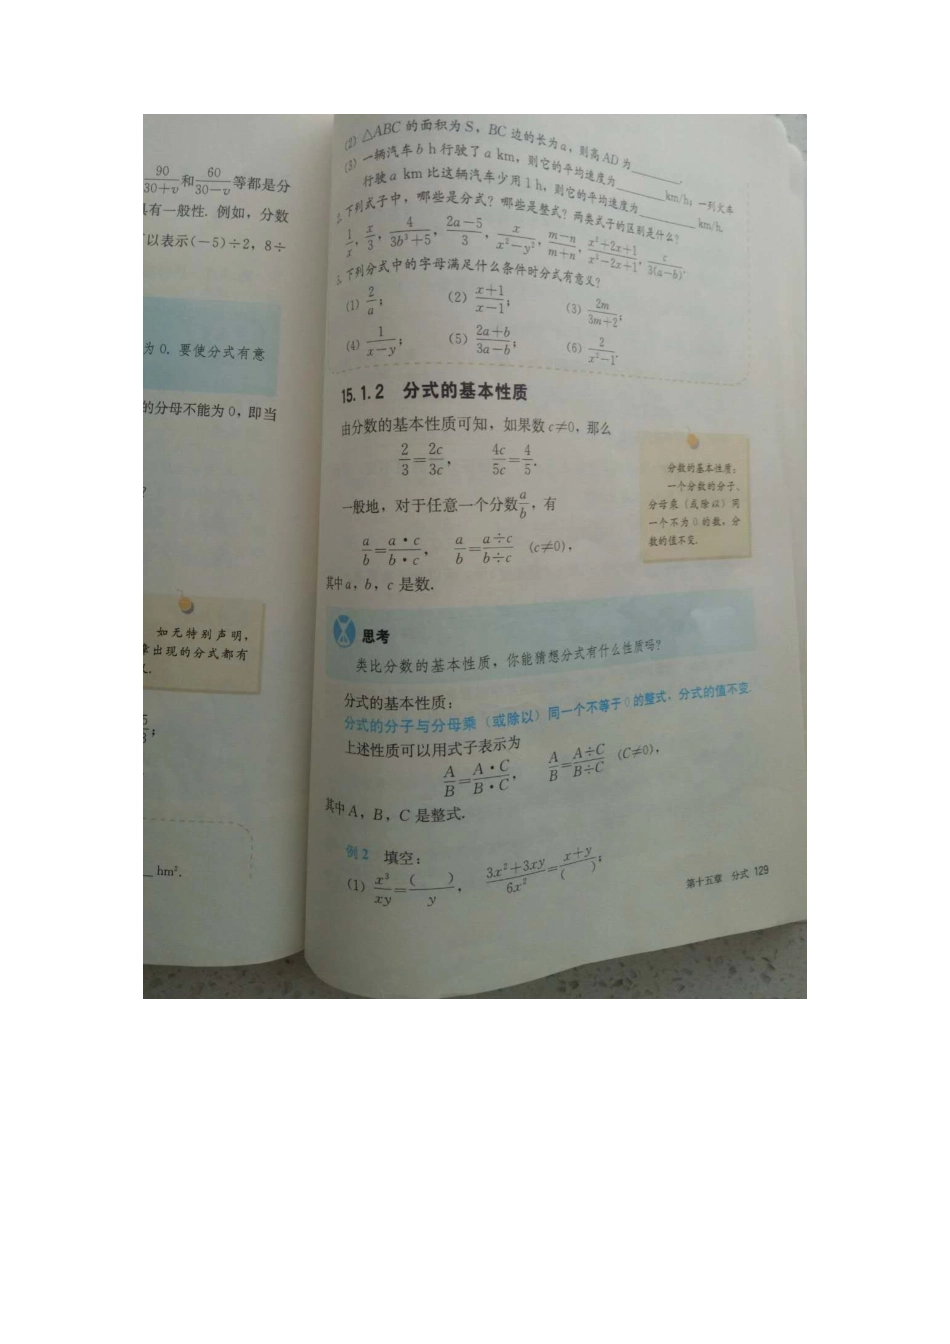 90/(30+v) 和 60/(30-v) 等都是分
具有一般性. 例如, 分数
以表示(-5)÷2, 8÷
为 0. 要使分式有意
的分母不能为 0, 即当
?
如无特别声明,
出现的分式都有
hm².
(2) △ABC 的面积为 S, BC 边的长为 a, 则高 AD 为______.
(3) 一辆汽车 b h 行驶了 a km, 则它的平均速度为______km/h; 一列火车
行驶 a km 比这辆汽车少用 1 h, 则它的平均速度为______km/h.
2. 下列式子中, 哪些是分式? 哪些是整式? 两类式子的区别是什么?
1/x, x/3, 4/(3b³+5), (2a-5)/3, x/(x²-y²), (m-n)/(m+n), (x²+2x+1)/(x²-2x+1), c/(3(a-b)).
3. 下列分式中的字母满足什么条件时分式有意义?
(1) 2/a; (2) (x+1)/(x-1); (3) 2m/(3m+2);
(4) 1/(x-y); (5) (2a+b)/(3a-b); (6) 2/(x²-1).
15.1.2 分式的基本性质
由分数的基本性质可知, 如果数 c≠0, 那么
2/3=2c/3c, 4c/5c=4/5.
一般地, 对于任意一个分数 a/b, 有
a/b=(a·c)/(b·c), a/b=(a÷c)/(b÷c) (c≠0),
其中 a, b, c 是数.
分数的基本性质:
一个分数的分子、
分母乘 (或除以) 同
一个不为 0 的数, 分
数的值不变.
思考
类比分数的基本性质, 你能猜想分式有什么性质吗?
分式的基本性质:
分式的分子与分母乘 (或除以) 同一个不等于 0 的整式, 分式的值不变.
上述性质可以用式子表示为
A/B=(A·C)/(B·C), A/B=(A÷C)/(B÷C) (C≠0),
其中 A, B, C 是整式.
例 2 填空:
(1) x³/xy=( )/y, (3x²+3xy)/6x²=(x+y)/( );
第十五章 分式 129